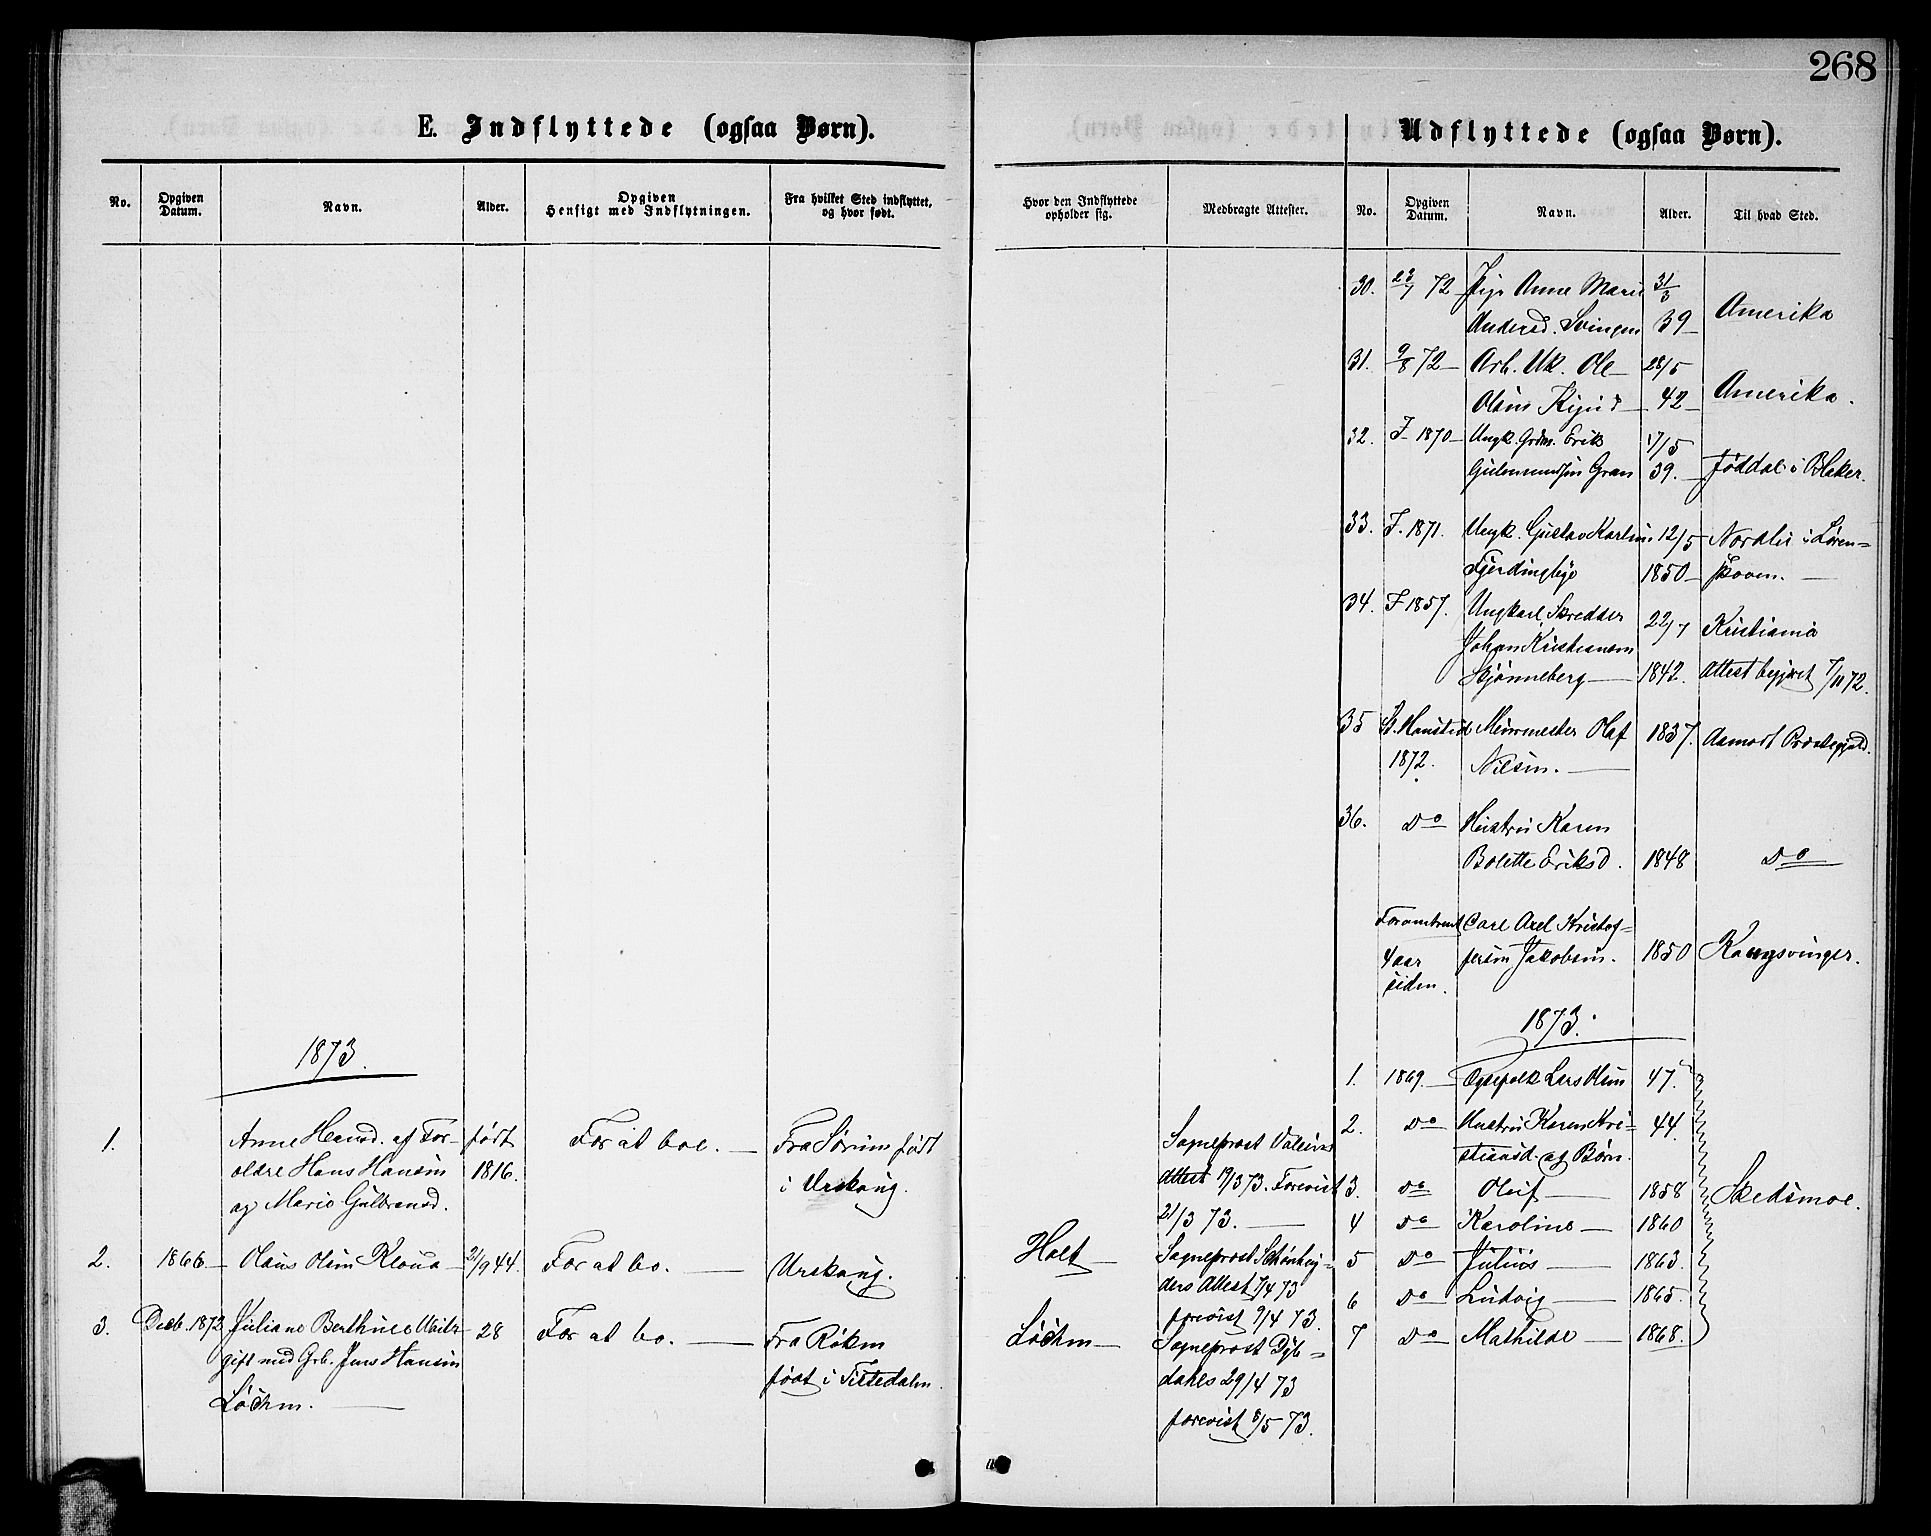 268
E. Indflyttede (ogsaa Børn).
No.
Opgiven
Datum.
Navn.
Alder.
Opgiven
Hensigt med Indflytningen.
Fra hvilket Sted indflyttet,
og hvor født.
1873.
1.
Anne Hansd. af For-
ældre Hans Hansen
og Marie Gulbransd.
født
1816.
For at boe.
Fra Sørum født
i Urskoug.
2.
1866
Olaus Olsen
21/9 44.
For at bo.
Urskoug.
3.
Decb. 1872
Juliane
gift med Grb. Jens Hansen
28
For at bo.
Fra
født i Tistedalen
Hvor den Indflyttede
opholder sig.
Medbragte Attester.
Sogneprost
Attest 19/3 73. Forevist
21/3 73.
Holt
Sogneprost
ders Attest 7/4 73
forevist 9/4 73.
Sogneprost Dyb=
dahls 29/4 73
forevist 8/5 73.
Udflyttede (ogsaa Børn).
No.
Opgiven
Datum.
Navn.
Alder.
Til hvad Sted.
30.
23/7 72
Pige Anne Marie
Andersd. Svingen
31/3
39
Amerika
31.
9/8 72
Arb. Uk. Ole
Olsen
28/5
42
Amerika.
32.
F. 1870
Ungk. Grdm. Erik
Gulbrandsen Gran
17/5
39.
i Blaker.
33.
F. 1871.
Ungk. Gustav Karlsen
Fjerdingbye
12/5
1850
Nordli i Løren=
skoven.
34.
F 1857.
Ungkarl Skrædder
Johan Kristiansen
Skjønneberg
22/7
1842.
Kristiania
Attest begjæret 7/11 72.
35
St. Hanstid
1872.
Murmester Olaf
Nilsen.
1837.
Aamodt Præstegjeld.
36.
Do
Hustru Karen
Bolette Eriksd.
1848
Do
For omtrent
4 aar
siden.
Carl Axel Kristof=
fersen Jakobsen.
1850
Kongsvinger.
1873.
1.
1869.
Lars Olsen
47.
2.
Do
Hustru Karen Kri=
stiansd. og Børn.
44.
3.
Do
Oluf
1858
Skedsmoe.
4
Do
Karoline
1860
5
Do
Julius
1863.
6
Do
Ludvig
1865.
7
Do
Mathilde
1868.